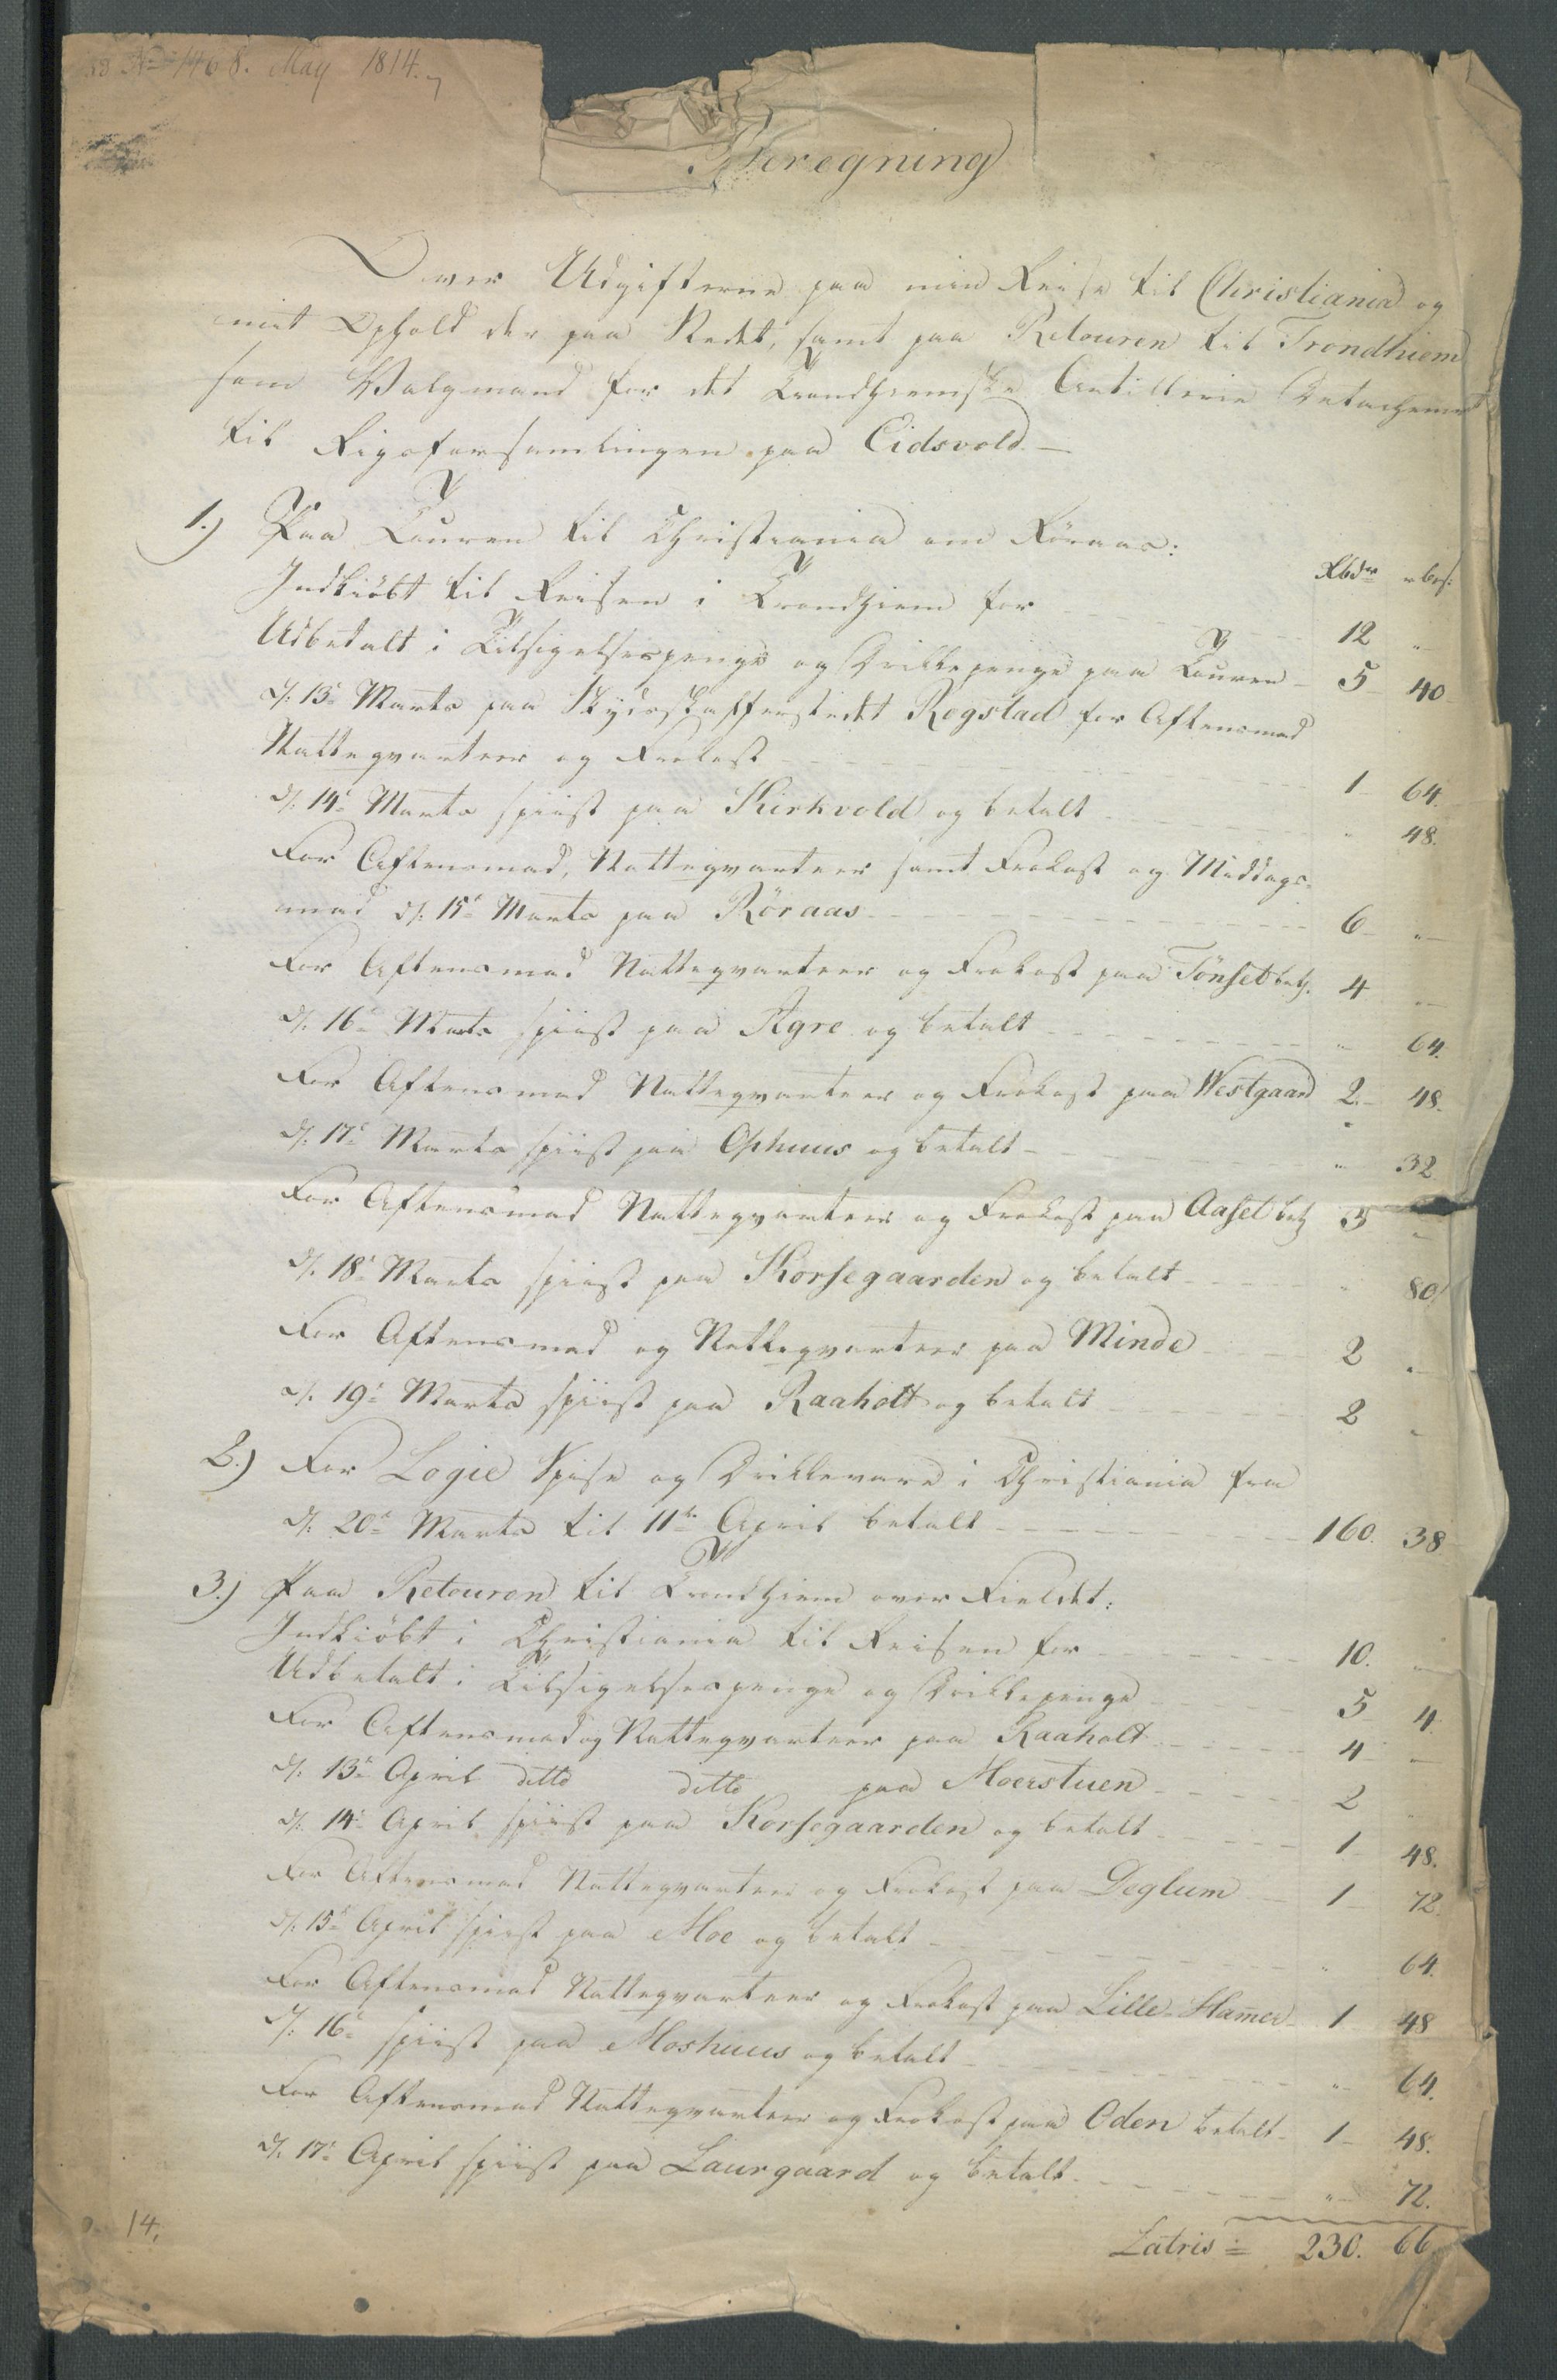 No 1468. May 1814.
Beregning
Over Udgifterne paa min Reise til Christiania og
mit Ophold der paa Stedet, samt paa Retouren til Trondhiem
som Valgmand for det Trondhiemske Artillerie Detachement
til Rigsforsamlingen paa Eidsvold.—
1.) Paa Touren til Christiania om Röraas:
Rbdr rbs:
Indkiöbt til Reisen i Trondhiem for 12 "
Udbetalt i Tilsigelsespenge og Drikkepenge paa Touren 5 40
d. 13de Marts paa Skydsskafferstedet Rogstad for Aftensmad
Natteqvarteer og Frokost 1 64.
d. 14de Marts spiist paa Kirkvold og betalt " 48.
For Aftensmad, Natteqvarteer samt Frokost og Middags-
mad d. 15de Marts paa Röraas 6 "
For Aftensmad Natteqvarteer og Frokost paa Tönset bet. 4 "
d. 16de Marts spiist paa Agre og betalt " 64.
For Aftensmad Natteqvarteer og Frokost paa Westgaard 2. 48.
d. 17de Marts spiist paa Ophuus og betalt " 32
For Aftensmad Natteqvarteer og Frokost paa Aaset bet. 5 "
d. 18de Marts spiist paa Korsegaarden og betalt " 80
For Aftensmad og Natteqvarteer paa Minde 2 "
d. 19de Marts spiist paa Raaholt og betalt 2 "
2.) For Logie Spise og Drikkevare i Christiania fra
d. 20de Marts til 11te April betalt 160. 38
3.) Paa Retouren til Trondhiem over Fieldet:
Indkiöbt i Christiania til Reisen for 10. "
Udbetalt i Tilsigelsespenge og Drikkepenge 5 4
For Aftensmad og Natteqvarteer paa Raaholt 4 "
d. 13de April ditto ditto paa Moerstuen 2 "
d. 14de April spiist paa Korsegaarden og betalt 1 48.
For Aftensmad Natteqvarteer og Frokost paa Deglum 1 72.
d. 15de April spiist paa Moe og betalt " 64.
For Aftensmad Natteqvarteer og Frokost paa Lille-Hamer 1 48
d. 16de spiist paa Moshuus og betalt " 64.
For Aftensmad Natteqvarteer og Frokost paa Oden betalt 1 48.
d. 17de April spiist paa Laurgaard og betalt " 72.
Latris = 230. 66
14.